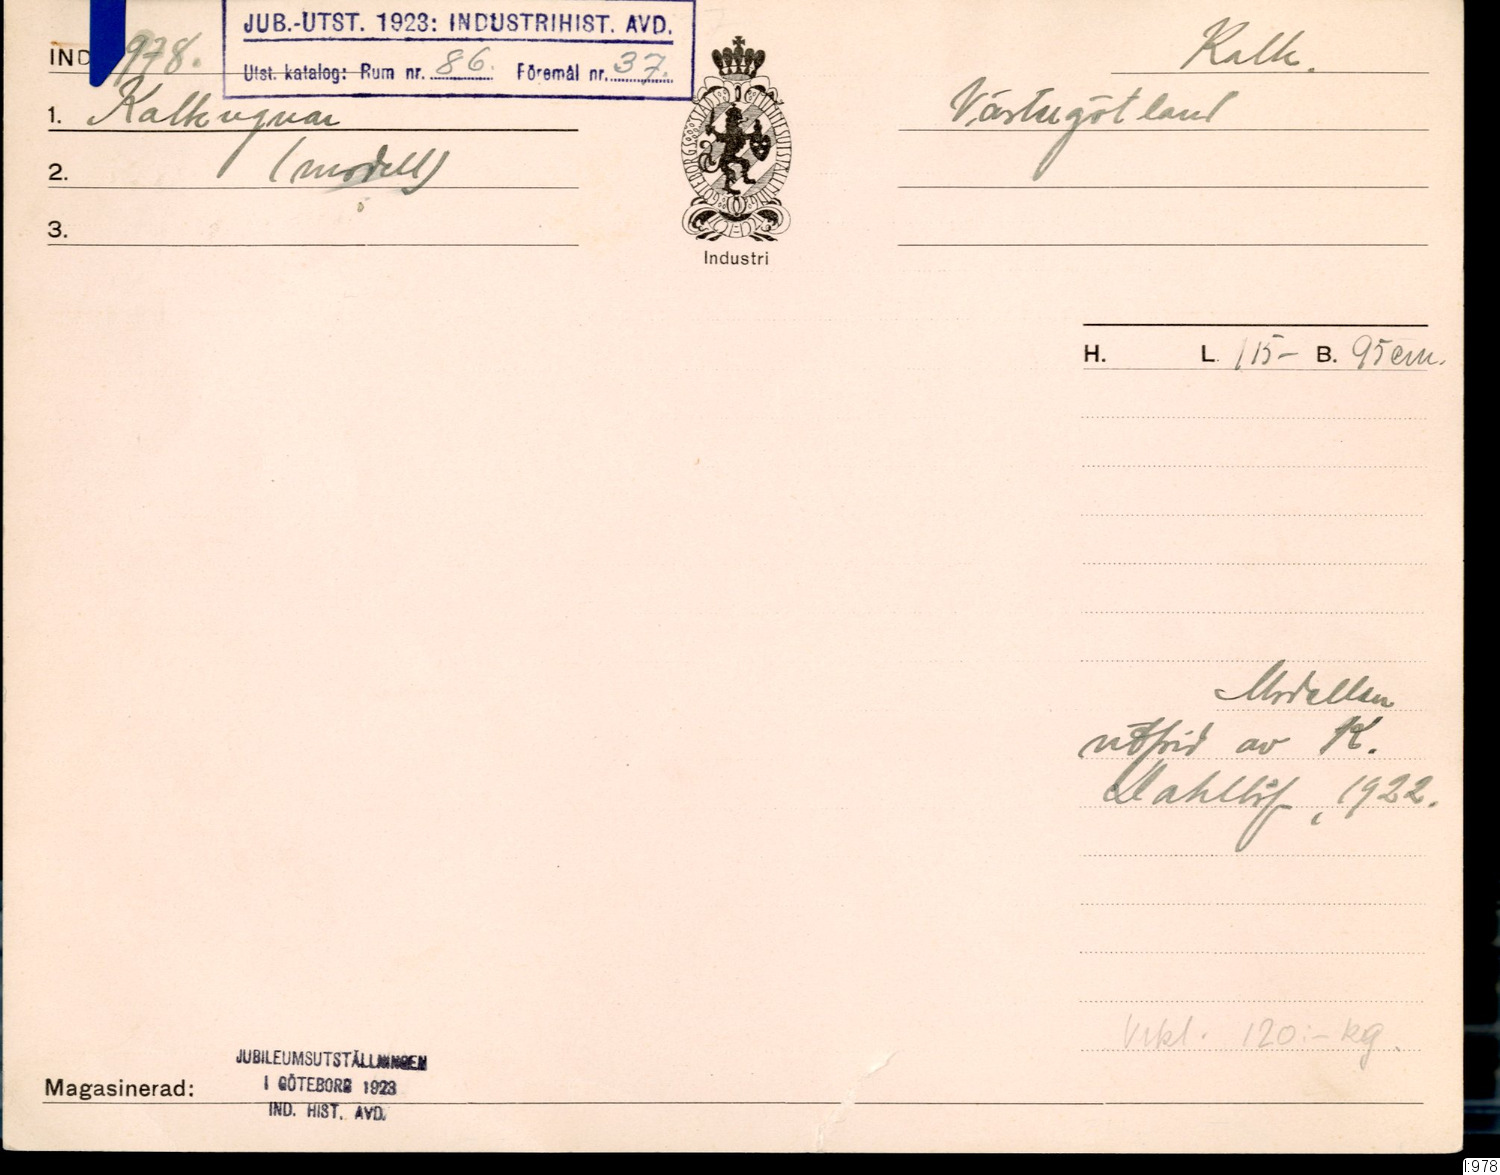 JUB.-UTST. 1923: INDUSTRIHIST. AVD.
Utst. katalog: Rum nr. 86. Föremål nr. 37.
IND 978.
Kalk.
1. Kalkugnar
Västergötland
2. (modell)
3.
Industri
H. L. 115- B. 95 cm.
Modellen
utförd av K.
Dahllöf, 1922.
Vikt. 120:- kg.
JUBILEUMSUTSTÄLLNINGEN
I GÖTEBORG 1923
IND. HIST. AVD.
Magasinerad:
I:978